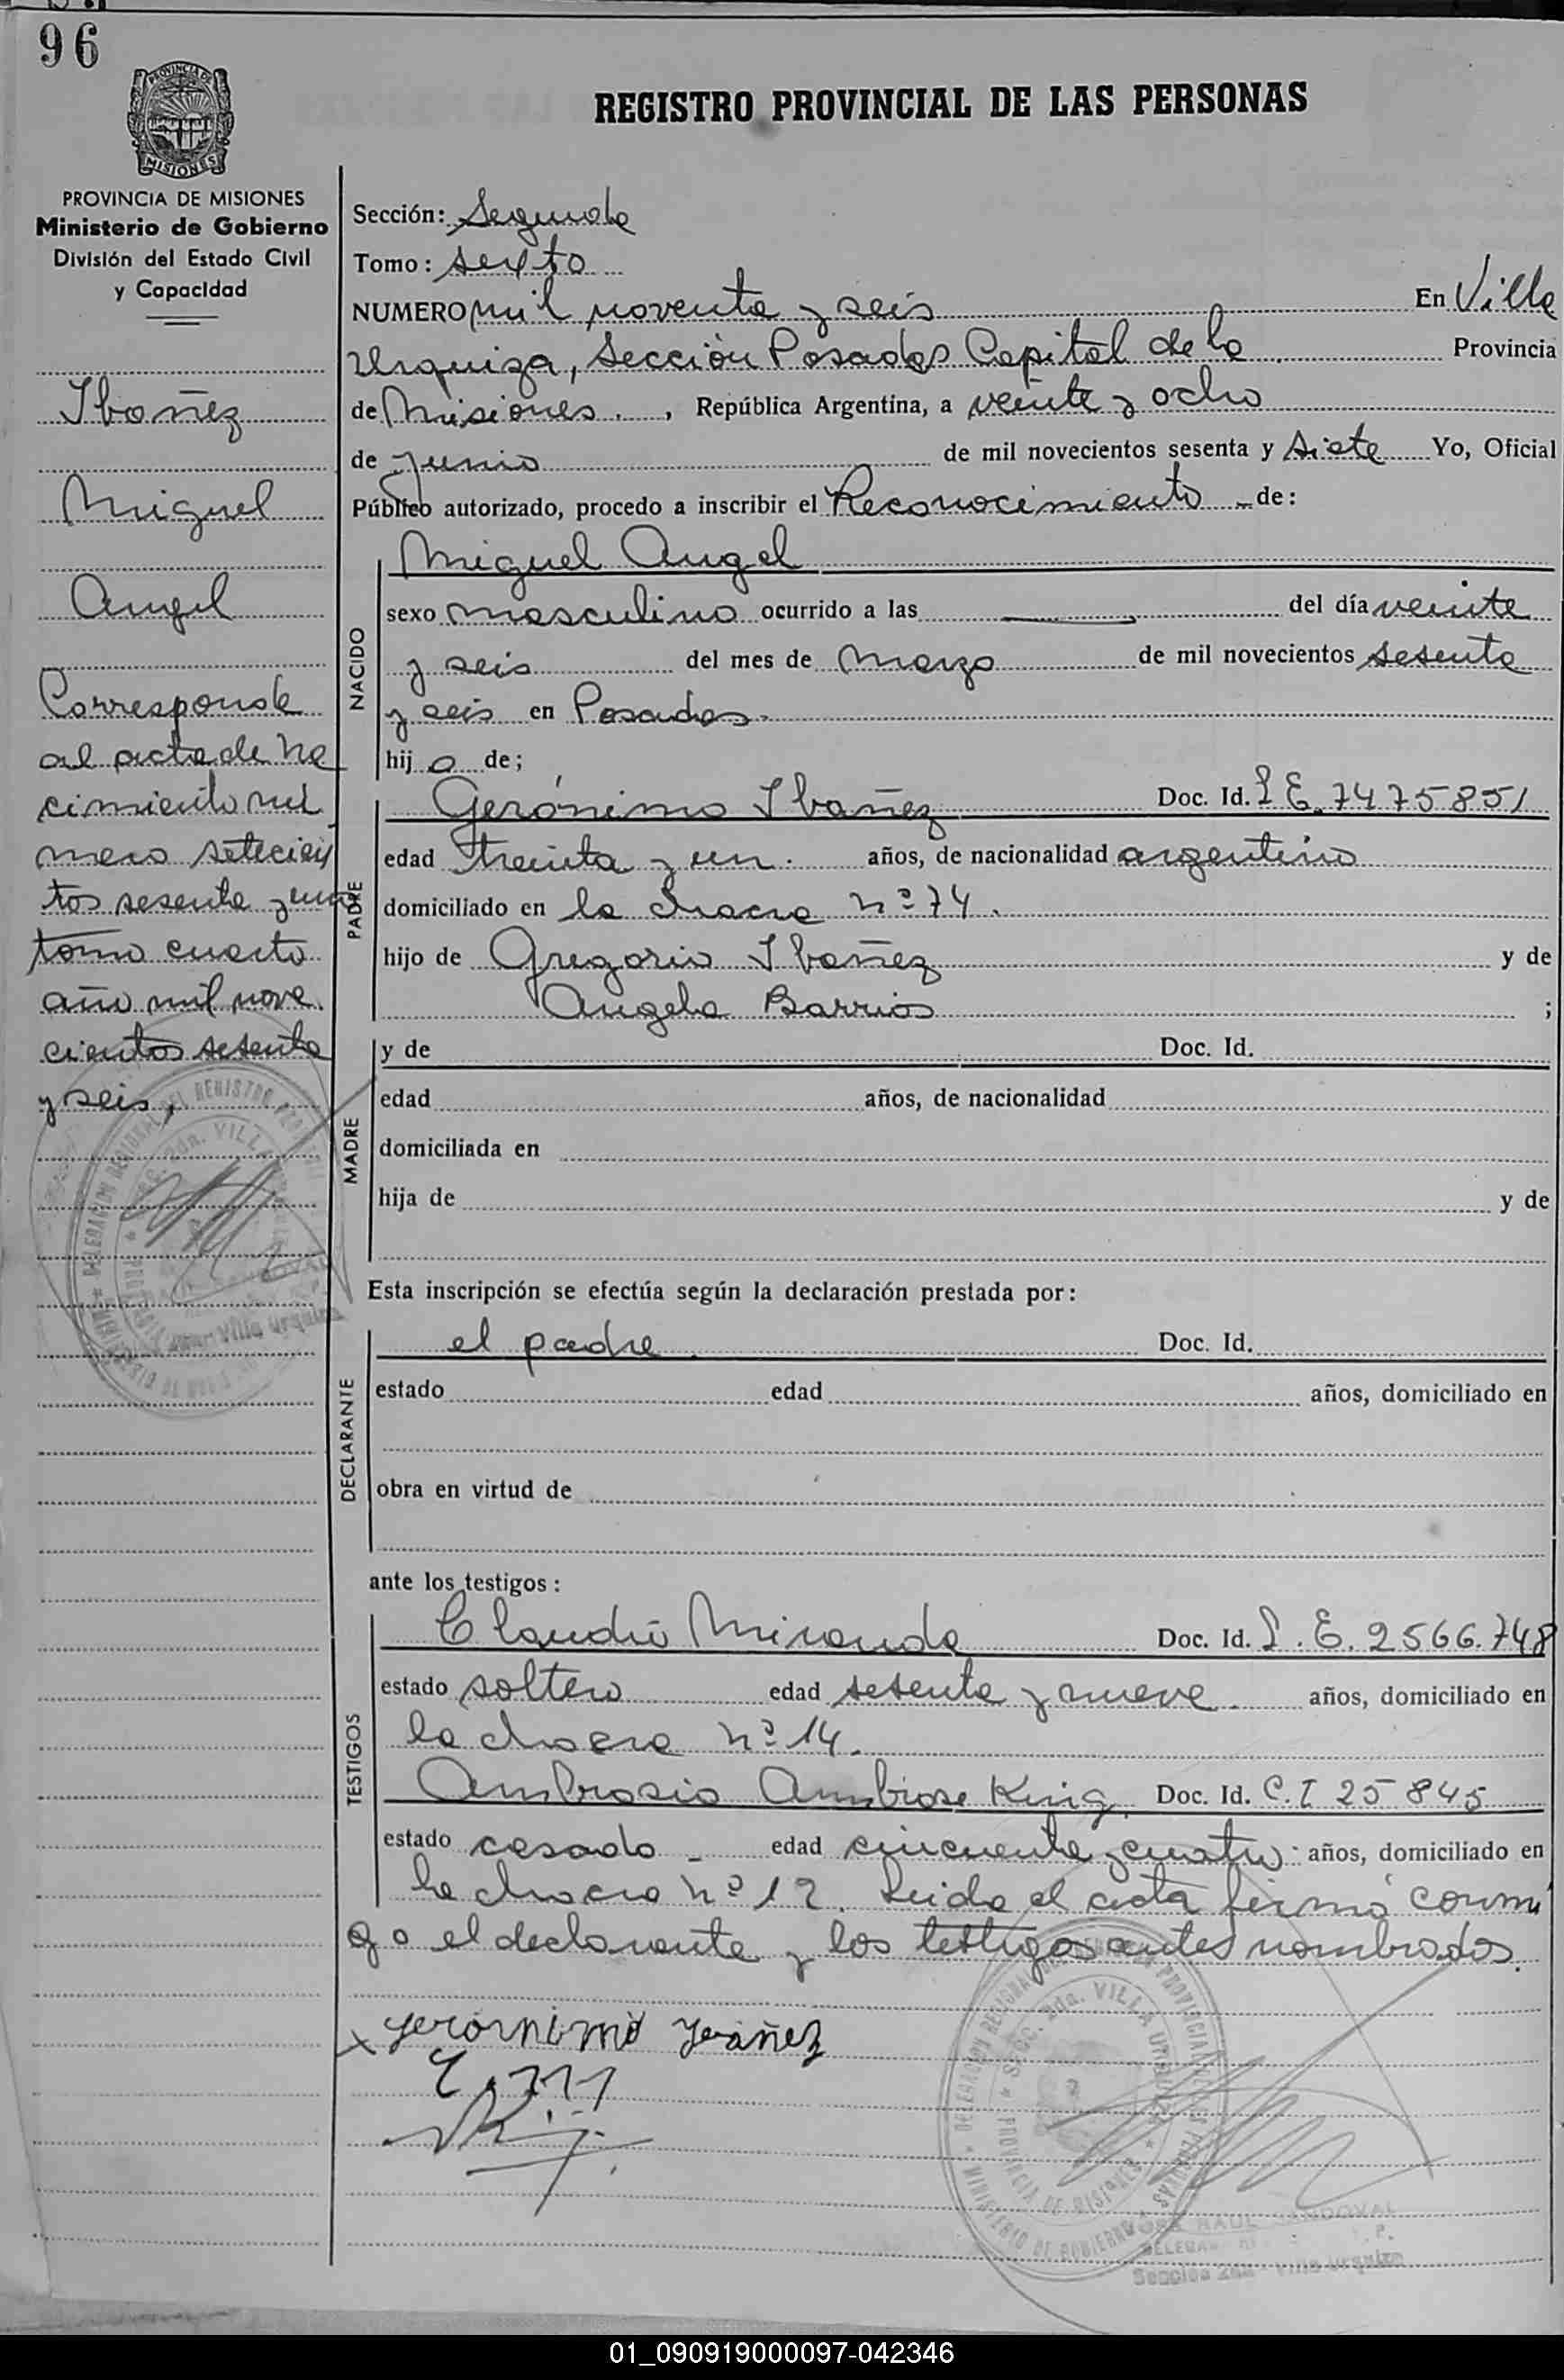 96
PROVINCIA DE
MISIONES
REGISTRO PROVINCIAL DE LAS PERSONAS
PROVINCIA DE MISIONES
Ministerio de Gobierno
División del Estado Civil
y Capacidad
Ibañez
Miguel
Angel
Corresponde
al acta de na
cimiento nú
mero setecien
tos sesenta y uno
tomo cuarto
año mil nove
cientos sesenta
y seis,
Sección: Segunda
Tomo: sexto
NUMERO mil noventa y seis En Villa
Urquiza, Sección Posadas Capital de la Provincia
de Misiones. , República Argentina, a veinte y ocho
de Junio de mil novecientos sesenta y siete Yo, Oficial
Público autorizado, procedo a inscribir el Reconocimiento de:
NACIDO
Miguel Angel
sexo masculino ocurrido a las del día veinte
y seis del mes de Marzo de mil novecientos sesenta
y seis en Posadas.
hijo de;
PADRE
Gerónimo Ibañez Doc. Id. L E. 7475851
edad treinta y un. años, de nacionalidad argentino
domiciliado en la chacra nº 74.
hijo de Gregorio Ibañez y de
Angela Barrios ;
MADRE
y de Doc. Id.
edad años, de nacionalidad
domiciliada en
hija de y de
Esta inscripción se efectúa según la declaración prestada por:
DECLARANTE
el padre. Doc. Id.
estado edad años, domiciliado en
obra en virtud de
ante los testigos:
TESTIGOS
Claudio Miranda Doc. Id. L. E. 2566.748
estado soltero edad sesenta y nueve años, domiciliado en
la chacra nº 14.
Ambrosio Ambrose King Doc. Id. C. I 25845
estado casado edad cincuenta y cuatro años, domiciliado en
la chacra nº 12. Leida el acta firmó conmi
go el declarante y los testigos antes nombrados.
x Gerónimo Ybáñez
DELEGACION REGIONAL DEL REGISTRO PROVINCIAL DE LAS PERSONAS
SECC. 2da. VILLA URQUIZA
PROVINCIA DE MISIONES
MINISTERIO DE GOBIERNO
RAUL SANDOVAL
Sección 2da - Villa Urquiza
01_090919000097-042346